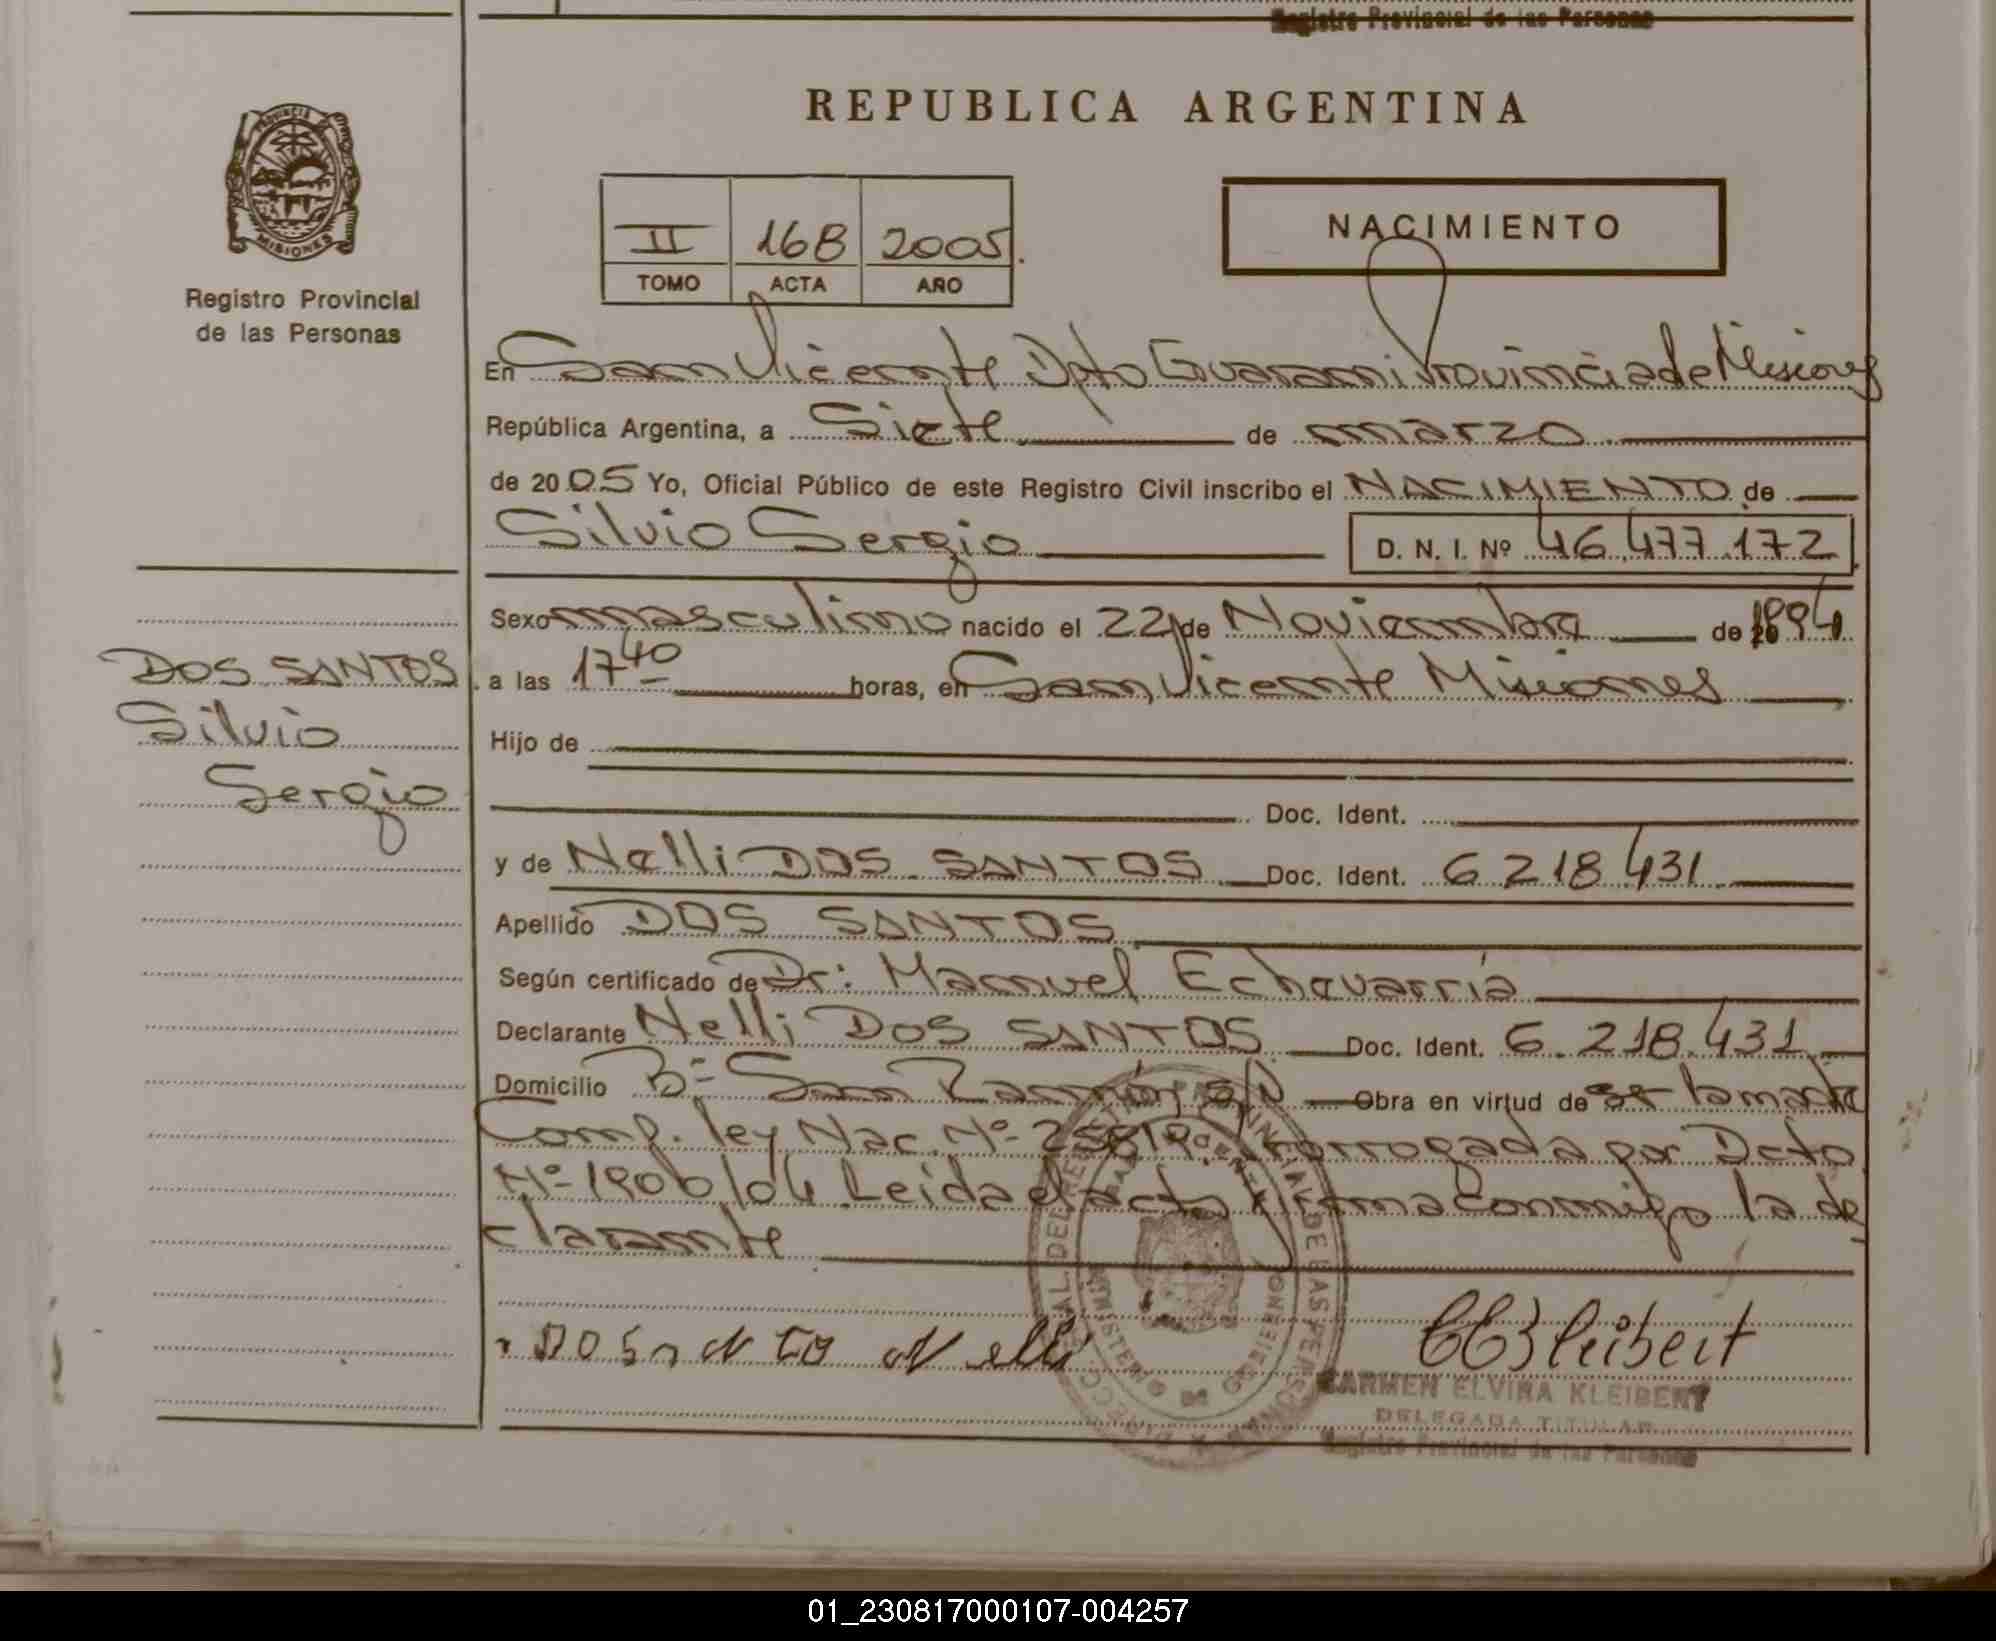 Registro Provincial de las Personas
REPUBLICA ARGENTINA
PROVINCIA DE
MISIONES
Registro Provincial
de las Personas
II 168 2005.
TOMO ACTA AÑO
NACIMIENTO
En San Vicente Dpto Guarani Provincia de Misiones
República Argentina, a Siete de marzo
de 2005 Yo, Oficial Público de este Registro Civil inscribo el NACIMIENTO de
Silvio Sergio D. N. I. Nº 46.477.172
Sexo masculino nacido el 22 de Noviembre de 1994
DOS SANTOS
Silvio
Sergio
a las 17 40 horas, en San Vicente Misiones
Hijo de
Doc. Ident.
y de Nelli DOS SANTOS Doc. Ident. 6 218 431
Apellido DOS SANTOS
Según certificado de Dr: Manuel Echavarría
Declarante Nelli DOS SANTOS Doc. Ident. 6.218.431
Domicilio Bº San Ramón s/N Obra en virtud de se tomarla
Comp. ley Nac. Nº 25819, Prorrogada por Dcto
Nº 190b/04 Leida el acta firma conmigo la de
clarante
Nelli
CARMEN ELVIRA KLEIBERT
DELEGADA TITULAR
Registro Provincial de las Personas
01_230817000107-004257